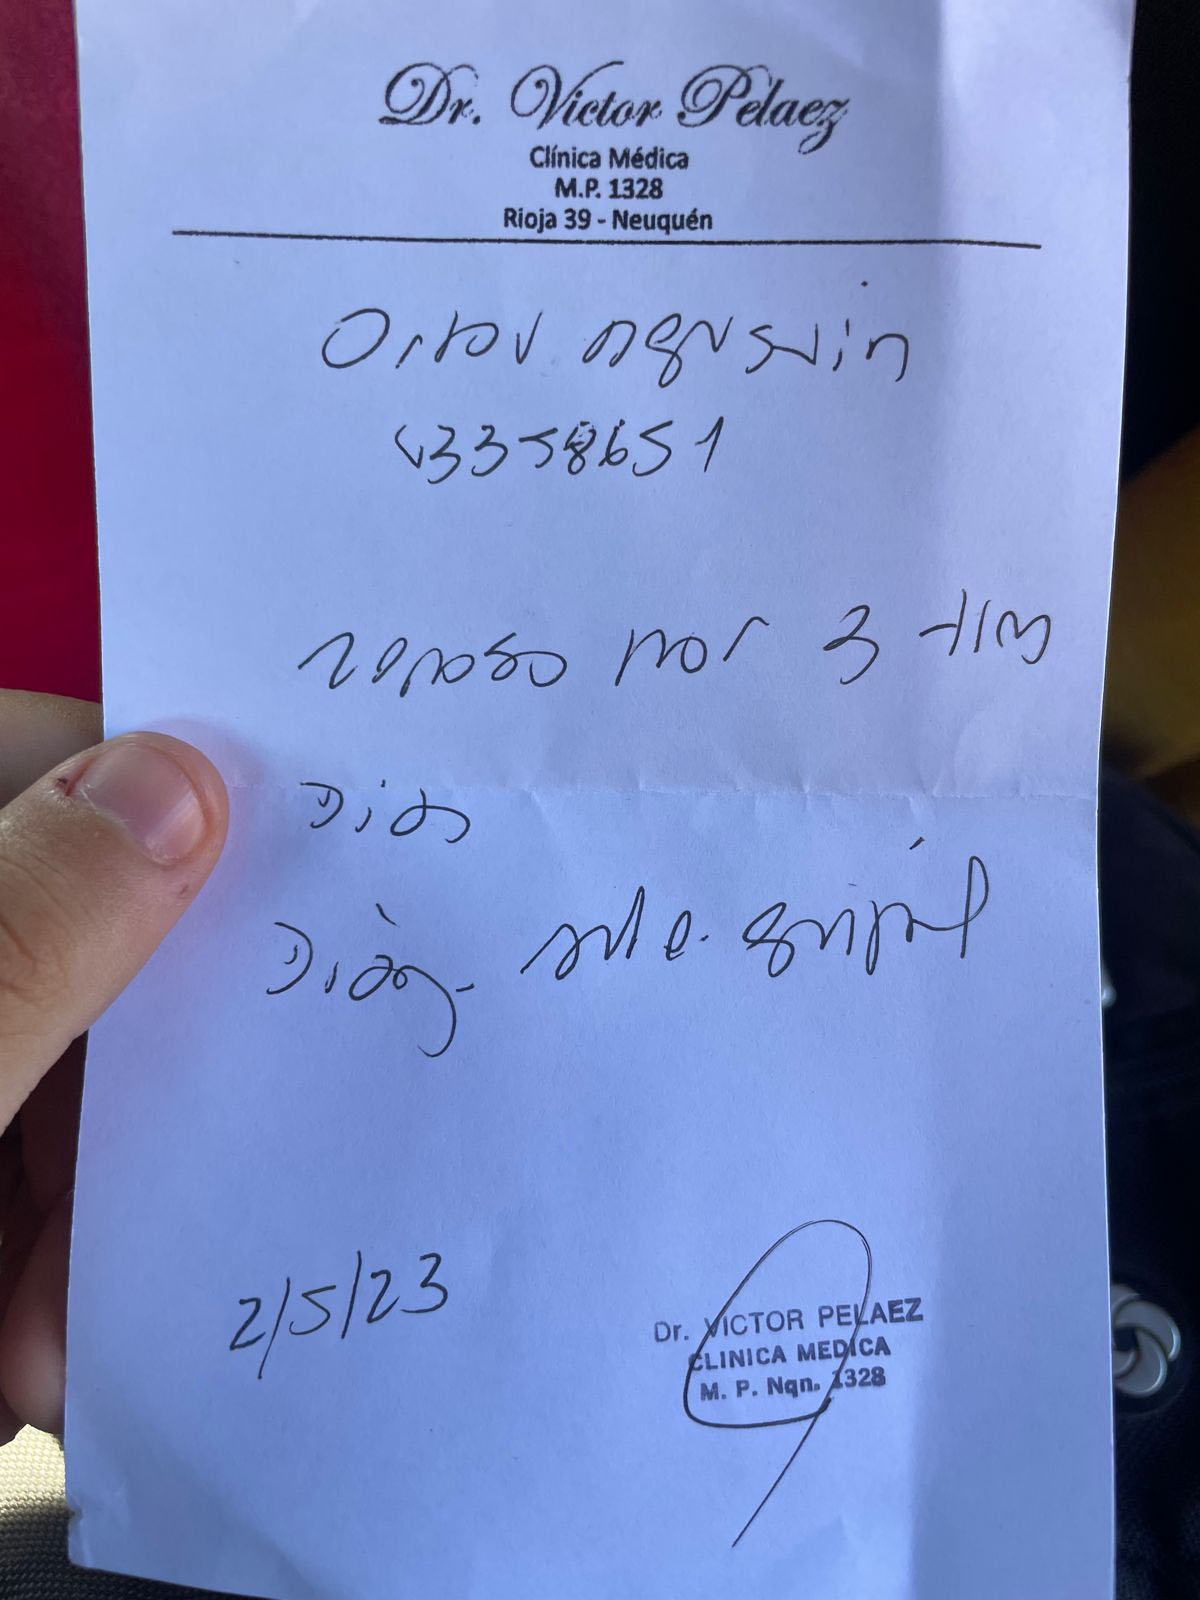 Dr. Victor Pelaez
Clínica Médica
M.P. 1328
Rioja 39 - Neuquén
agustin
43358651
reposo por 3 tres
Dias
Diag. gripal
2/5/23
Dr. VICTOR PELAEZ
CLINICA MEDICA
M. P. Nqn. 1328